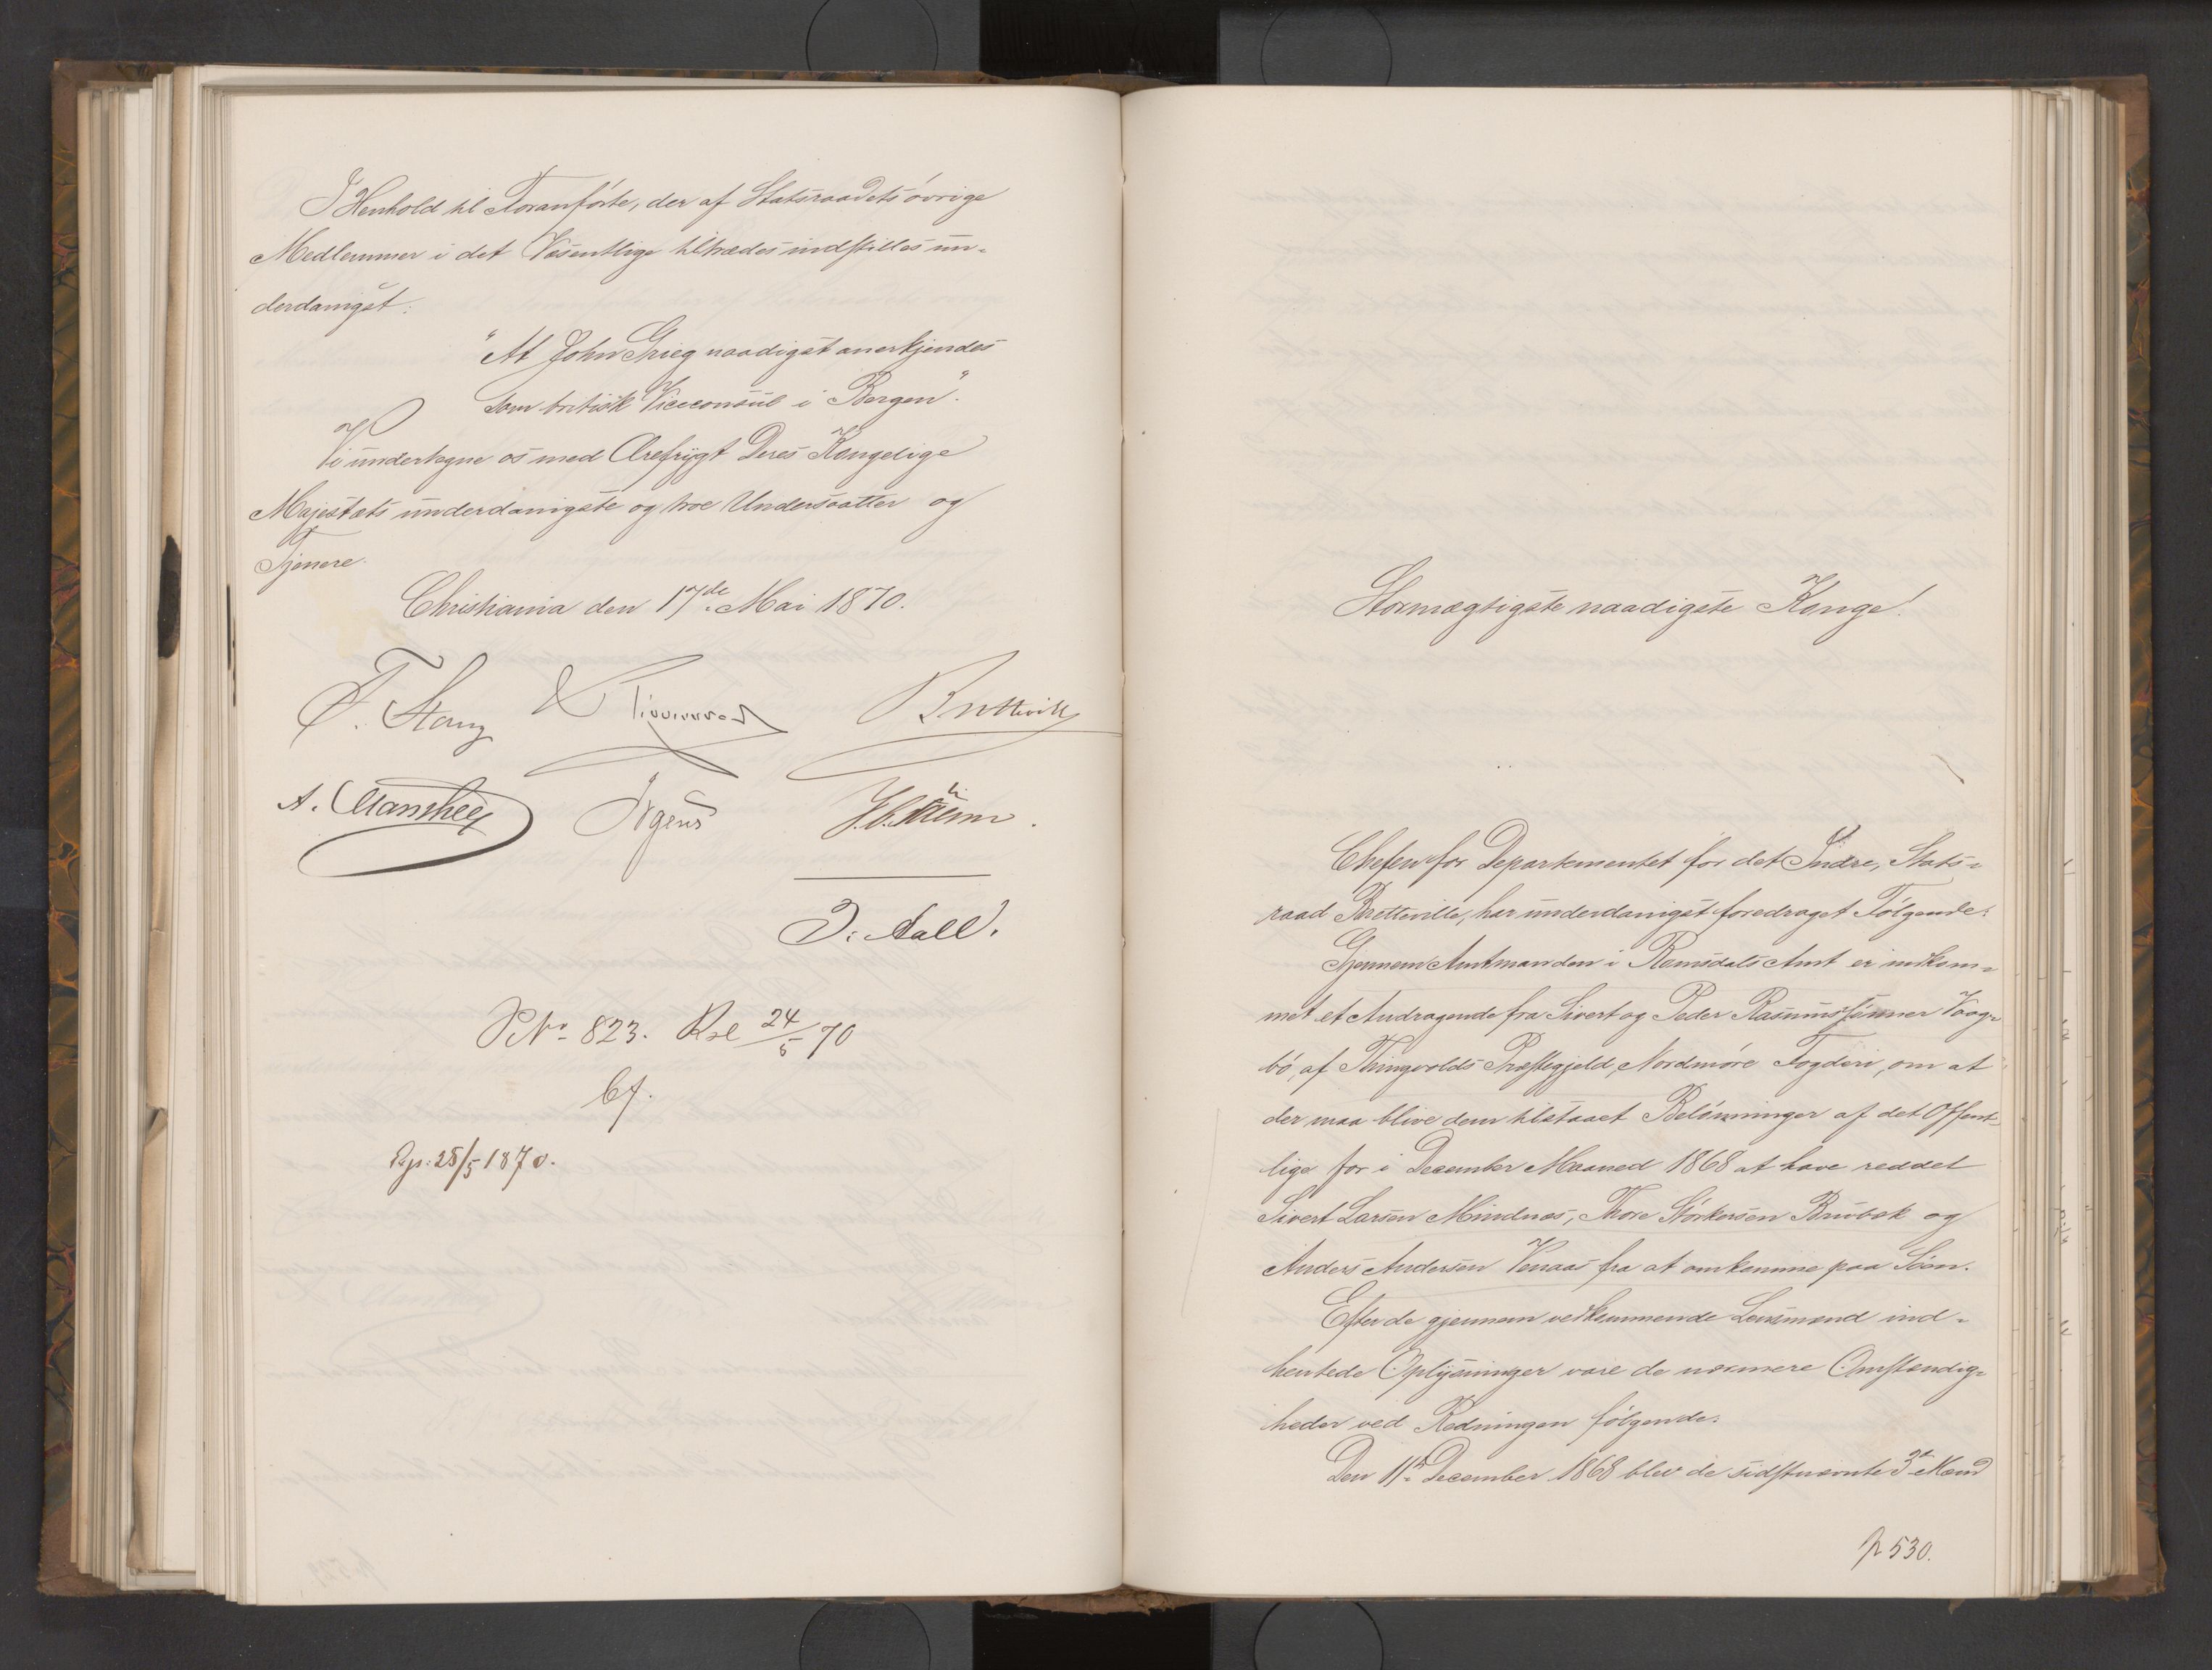 I Henhold til Foranførte, der af Statsraadets øvrige
Medlemmer i det Væsentlige tiltrædes indstilles un-
derdanigst:
"At John Grieg naadigst anerkjendes
som britisk Viceconsul i Bergen".
Vi undertegne os med Ærefrygt Deres Kongelige
Majestæts underdanigste og troe Undersaatter og
Tjenere.
Christiania den 17de Mai 1870.
F. Stang Bretteville
A. Manthey Irgens J.C. Helm.
D: Aall.
P.No 823. Rsl 24/5 70
Exp: 25/5 1870.
Stormægtigste naadigste Konge!
Chefen for Departementet for det Indre, Stats-
raad Bretteville, har underdanigst foredraget Følgende:
Gjennem Amtmanden i Romsdals Amt er indkom-
met et Andragende fra Sivert og Peder Rasmussønner Vaag-
bø, af Thingvolds Præstegjeld, Nordmøre Fogderi, om at
der maa blive dem tilstaaet Belønninger af det Offent-
lige for i December Maaned 1868 at have reddet
Sivert Larsen Mindnæs, Thore Størkersen Brubæk og
Anders Andersen Venaas fra at omkomme paa Søen.
Efter de gjennem vedkommende Lensmand ind-
hentede Oplysninger vare de nærmere Omstændig-
heder ved Redningen følgende:
Den 11te December 1868 blev de sidstnævnte 3de Mænd
p 530.